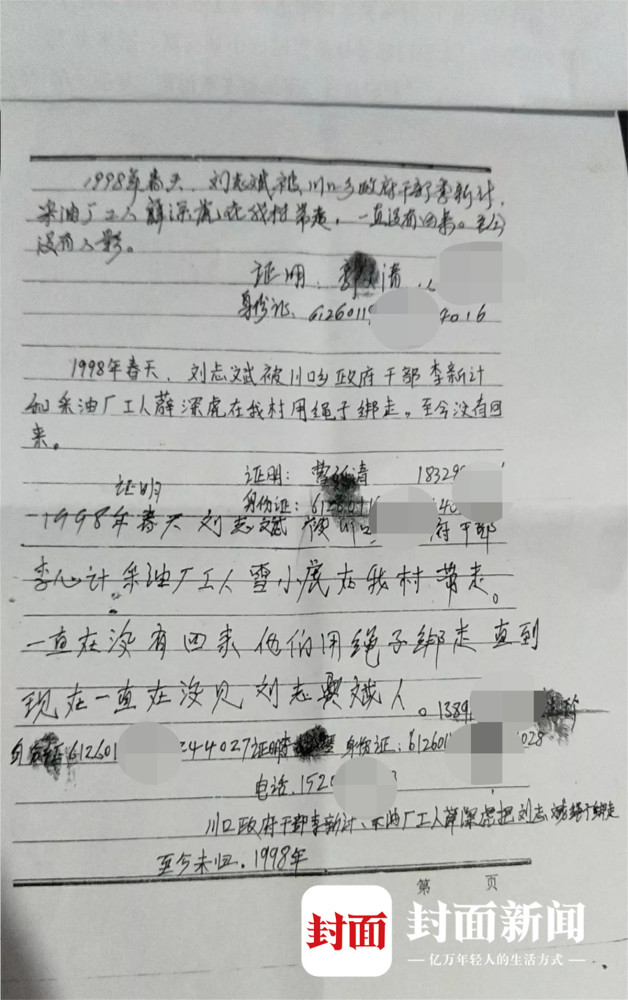 1998年春天、刘志斌被川口乡政府干部李新计、
采油厂工人薛深虎在我村带走，一直没有回来。至今
没有人影。
证明：郭清
身份证、6126011 4016
1998年春天、刘志斌被川口乡政府干部李新计
和采油厂工人薛深虎在我村用绳子绑走，至今没有回
来。
证明：曹清 18329
证明 身份证：
1998年春天刘志斌 府干部
李心计采油厂工人雪小虎在我村带走。
一直在没有回来他们用绳子绑走直到
现在一直在没见刘志斌人。1389
612601 244027证明李 身份证：612601 028
电话.1520
川口政府干部李新计、采油厂工人薛深虎把刘志斌绳子绑走
至今未归.1998年
第 页
封面 封面新闻
亿万年轻人的生活方式